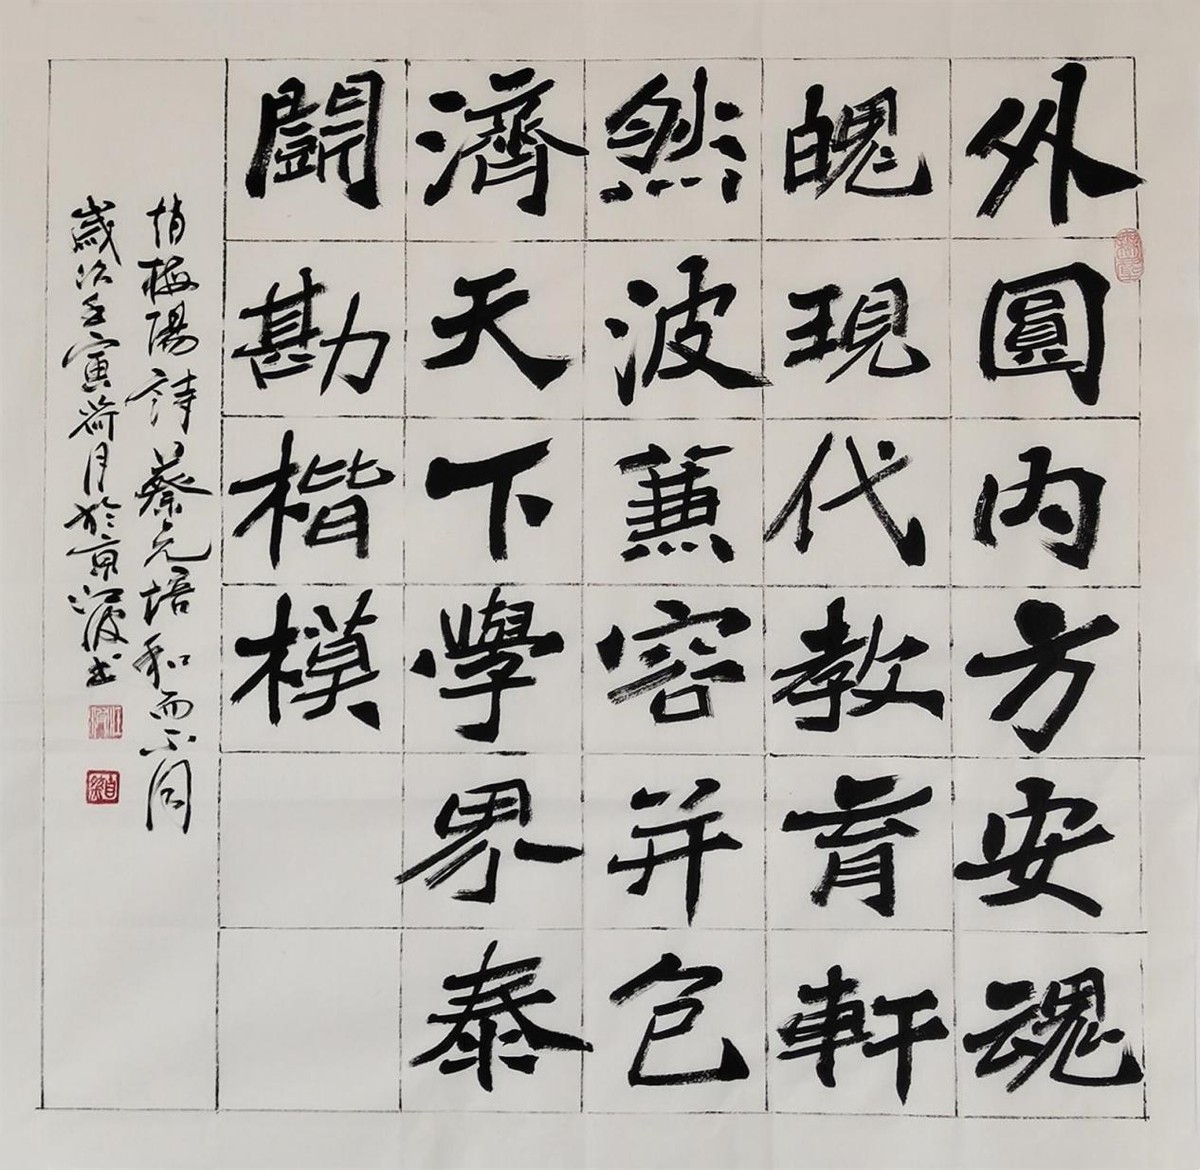 外圓内方安魂
魄現代教育軒
然波蕙容并包
濟天下學界泰
鬭勘楷模
梅陽詩蔡元培和而不同
歲次壬寅荷月於京江波书